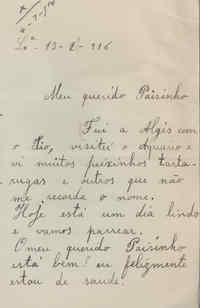 Lxª - 13-8-916
Meu querido Paisinho
Fui a Algés com
o tio, visitei o Aquario e
vi muitos peixinhos tarta-
rugas e outros que não
me recorda o nome.
Hoje está um dia lindo
e vamos passear.
O meu querido Paisinho
está bem? eu felizmente
estou de saude.